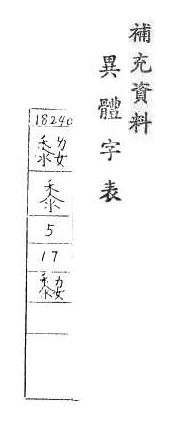 補充資料
異體字表
18240
黍
5
17